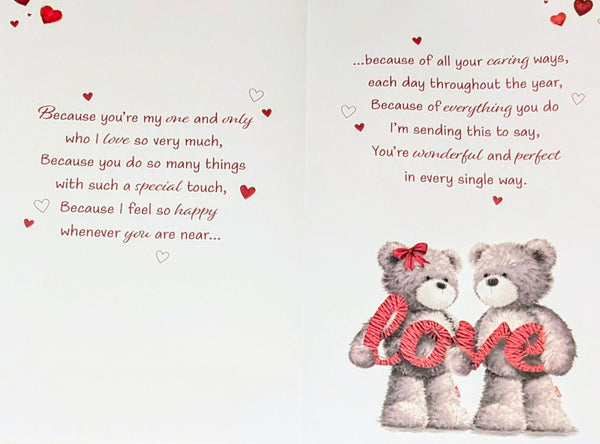 Because you're my one and only
who I love so very much,
Because you do so many things
with such a special touch,
Because I feel so happy
whenever you are near...
...because of all your caring ways,
each day throughout the year,
Because of everything you do
I'm sending this to say,
You're wonderful and perfect
in every single way.
love